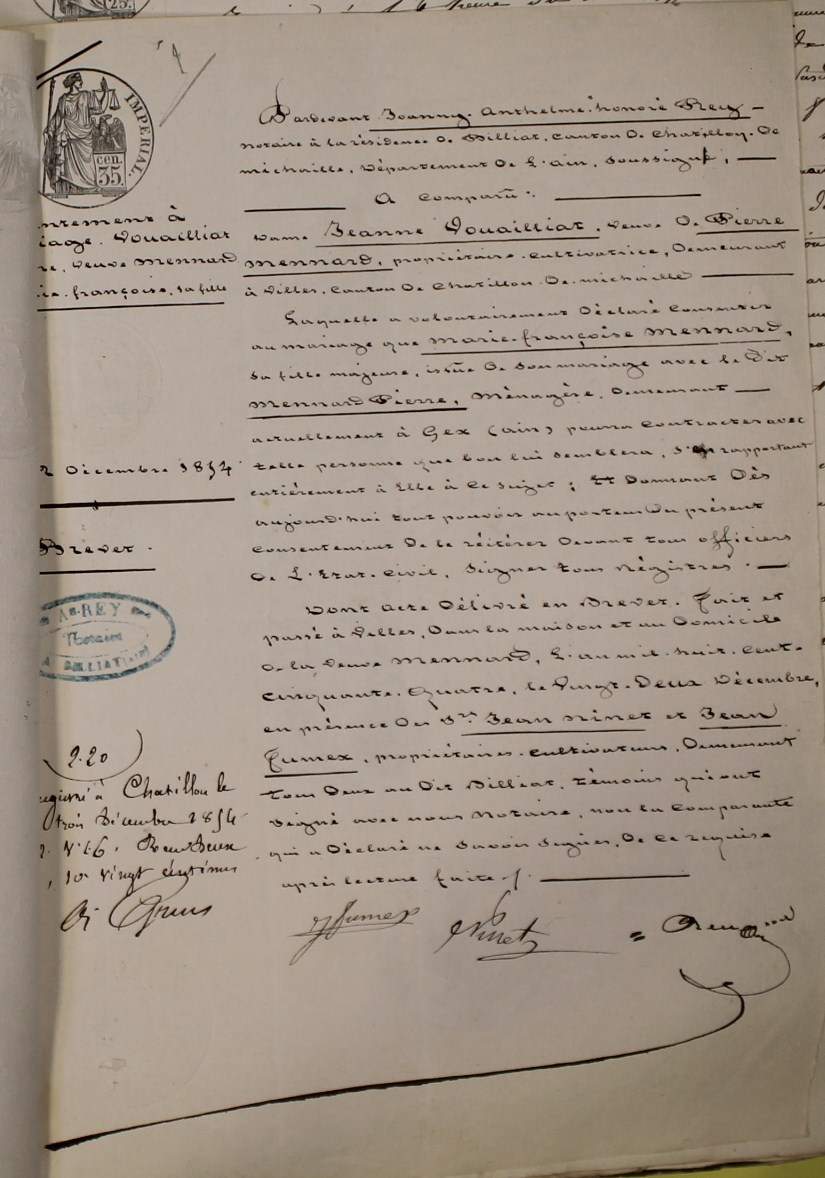 IMPERIAL
35 cen.
Pardevant Joanny. Anthelme. honoré Rey -
notaire à la résidence de Billiat, canton de Chatillon. de
michaille, Département de l'ain, soussigné, —
A comparu :
Dame Jeanne Vouailliat, veuve de Pierre
mennard, propriétaire. cultivatrice, demeurant
à Villes. canton de Chatillon. de. michaille
Laquelle a volontairement déclaré consentir
au mariage que marie-françoise mennard,
sa fille majeure, issüe de son mariage avec le dit
mennard Pierre, ménagère, demeurant —
actuellement à Gex (ain) pourra contracter avec
telle personne que bon lui semblera, s'en rapportant
entièrement à Elle à ce sujet ; Et Donnant dès
aujourd'hui tout pouvoir au porteur du présent
consentement de le réitérer devant tous officiers
de l'Etat. civil, signer tous régistres. —
Dont acte délivré en Brevet. fait et
passé à Villes, dans la maison et au domicile
de la veuve mennard, l'an mil. huit. cent.
cinquante. quatre, le vingt-deux Décembre,
en présence des Srs. Jean ninet et Jean
fumex, propriétaires. cultivateurs, demeurant
tous deux au dit Billiat, témoins qui ont
signé avec nous notaire, non la comparante
qui a déclaré ne savoir signer, de ce requise
après lecture faite /.
Jfumex
Ninet
Rey
ntement à
iage. Vouailliat
re, veuve mennard
ie. françoise, sa fille
2 Décembre 1854
Brevet.
An. REY
Notaire
A BILLIAT (AIN)
2.20
registré à Chatillon le
trois Décembre 1854
vingt centimes